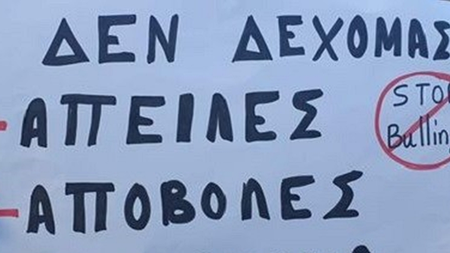 ΔΕΝ ΔΕΧΟΜΑΣ
- ΑΠΕΙΛΕΣ
- ΑΠΟΒΟΛΕΣ
STO
Bullin